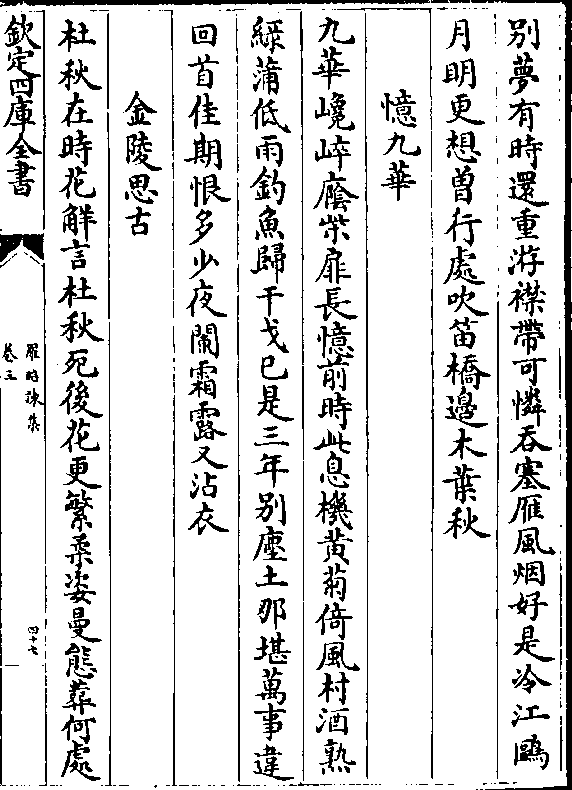 別夢有時還重游襟帶可憐吞塞雁風烟好是冷江鷗
月明更想曽行處吹笛橋邊木葉秋
憶九華
九華巉崪廕柴扉長憶前時此息機黄菊倚風村酒熟
緑蒲低雨釣魚歸干戈已是三年别塵土那堪萬事違
回首佳期恨多少夜闌霜露又沾衣
金陵思古
杜秋在時花解言杜秋死後花更繁柔姿曼態葬何處
欽定四庫全書
卷三
四十七